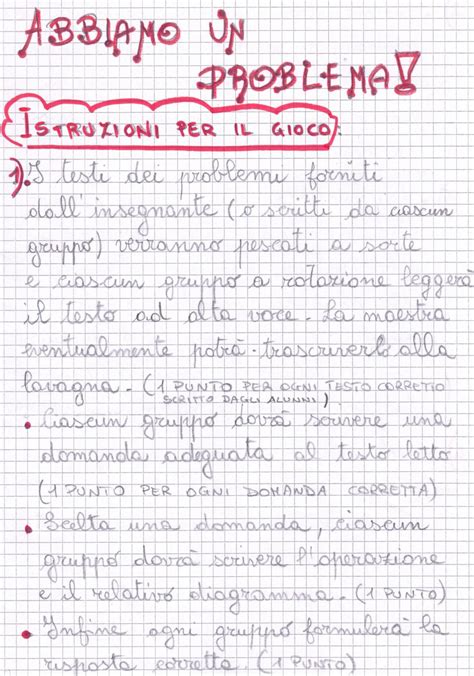 ABBIAMO UN
PROBLEMA!
ISTRUZIONI PER IL GIOCO:
1). I testi dei problemi forniti
dall'insegnante (o scritti da ciascun
gruppo) verranno pescati a sorte
e ciascun gruppo a rotazione leggerà
il testo ad alta voce. La maestra
eventualmente potrà trascriverlo alla
lavagna. (1 PUNTO PER OGNI TESTO CORRETTO
SCRITTO DAGLI ALUNNI)
• Ciascun gruppo dovrà scrivere una
domanda adeguata al testo letto
(1 PUNTO PER OGNI DOMANDA CORRETTA)
• Scelta una domanda, ciascun
gruppo dovrà scrivere l'operazione
e il relativo diagramma. (1 PUNTO)
• Infine ogni gruppo formulerà la
risposta corretta. (1 PUNTO)